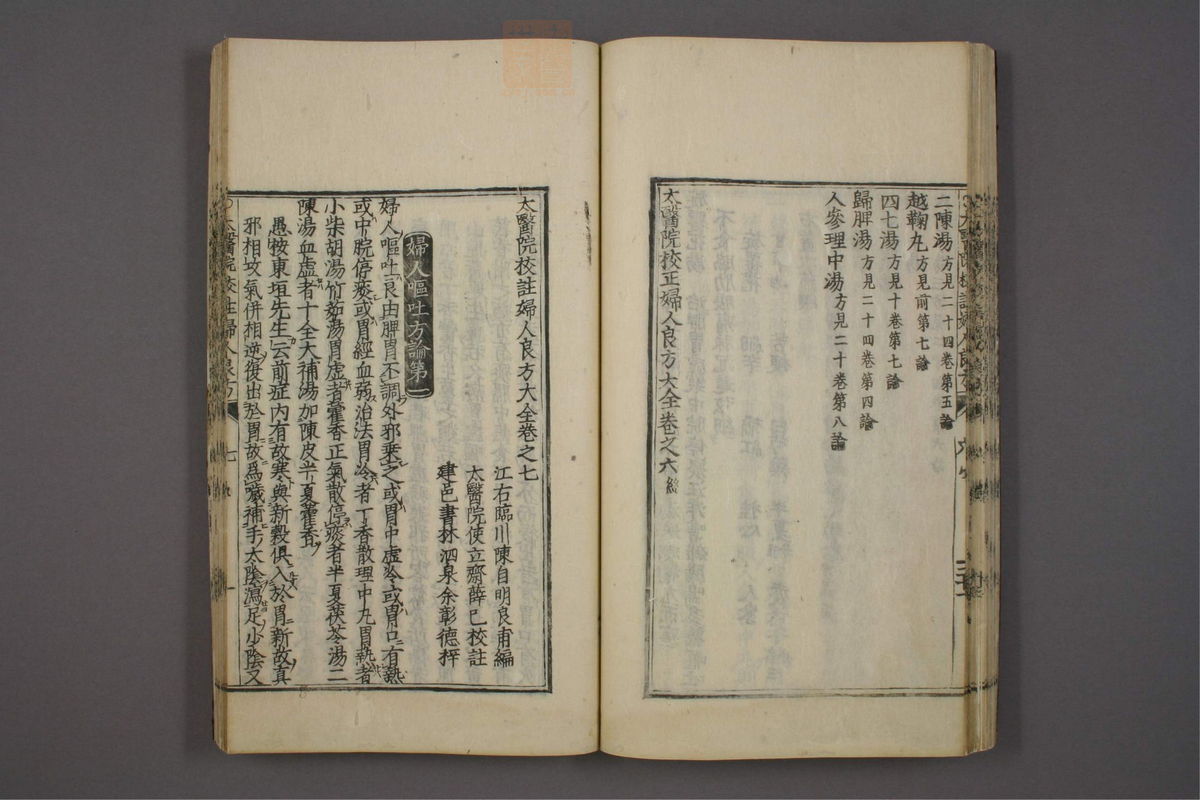 二陳湯方見二十四卷第五論
越鞠丸方見前第七論
四七湯方見十卷第七論
歸脾湯方見二十四卷第四論
人參理中湯方見二十卷第八論
太醫院校正婦人良方大全卷之六終
太醫院校註婦人良方大全卷之七
江右臨川陳自明良甫編
太醫院使立齋薛己校註
建邑書林泗泉余彰德梓
婦人嘔吐方論第一
婦人嘔吐良由脾胃不調外邪乗之或胃中虛冷或胃口有熱
或中脘停痰或胃經血弱治法胃冷者丁香散理中丸胃熱者
小柴胡湯竹茹湯胃虛者藿香正氣散停痰者半夏茯苓湯二
陳湯血虛者十全大補湯加陳皮半夏藿香
愚按東垣先生云前症內有故寒與新穀俱入於胃新故真
邪相攻氣併相逆復出於胃故爲噦補手太陰瀉足少陰又
太醫院校註婦人良方 七 一